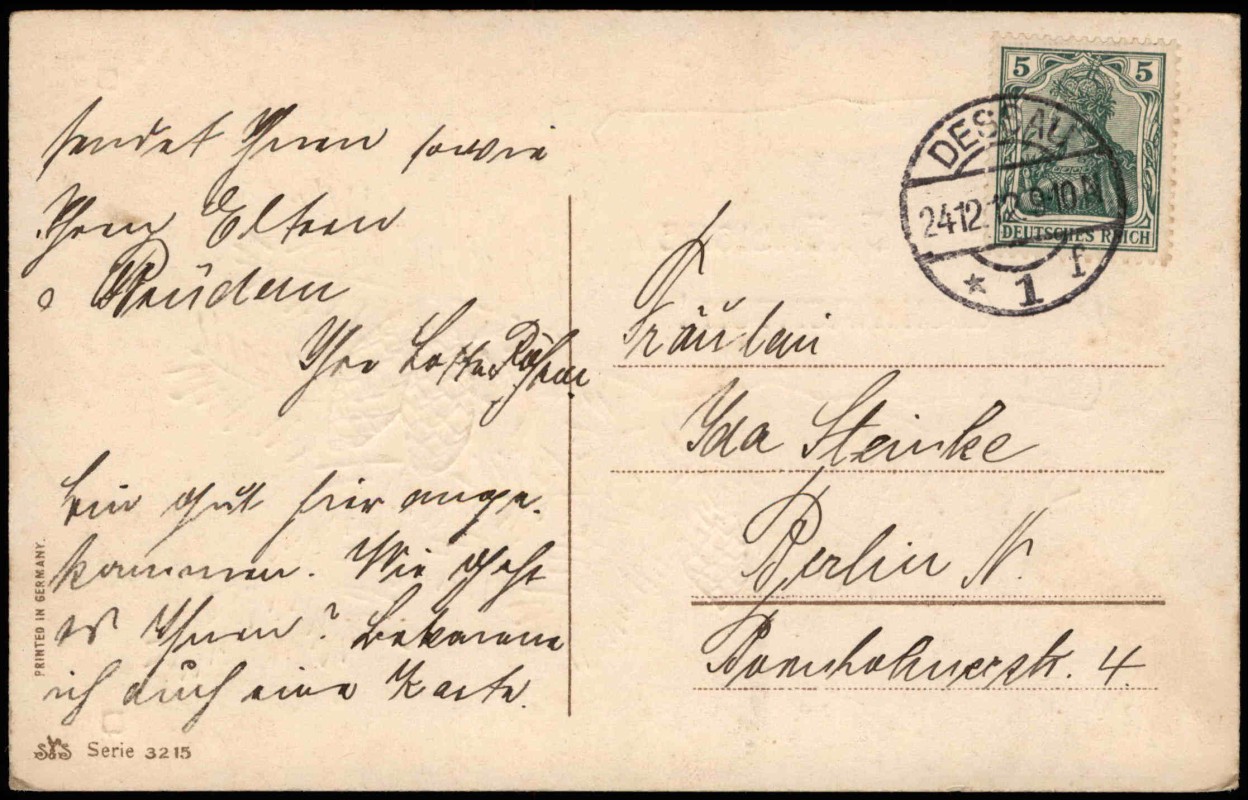 sendet Ihnen sowie
Ihren Eltern
Ihre Lotte
bin gut hier ange-
kommen. Wie geht
es Ihnen? Bekomme
ich auch eine Karte.
PRINTED IN GERMANY.
Serie 3215
5 5
DEUTSCHES REICH
DESSAU
24.12.12. 9-10 N
* 1 f
Fräulein
Ida Steinke
Berlin N.
Bornholmerstr. 4.